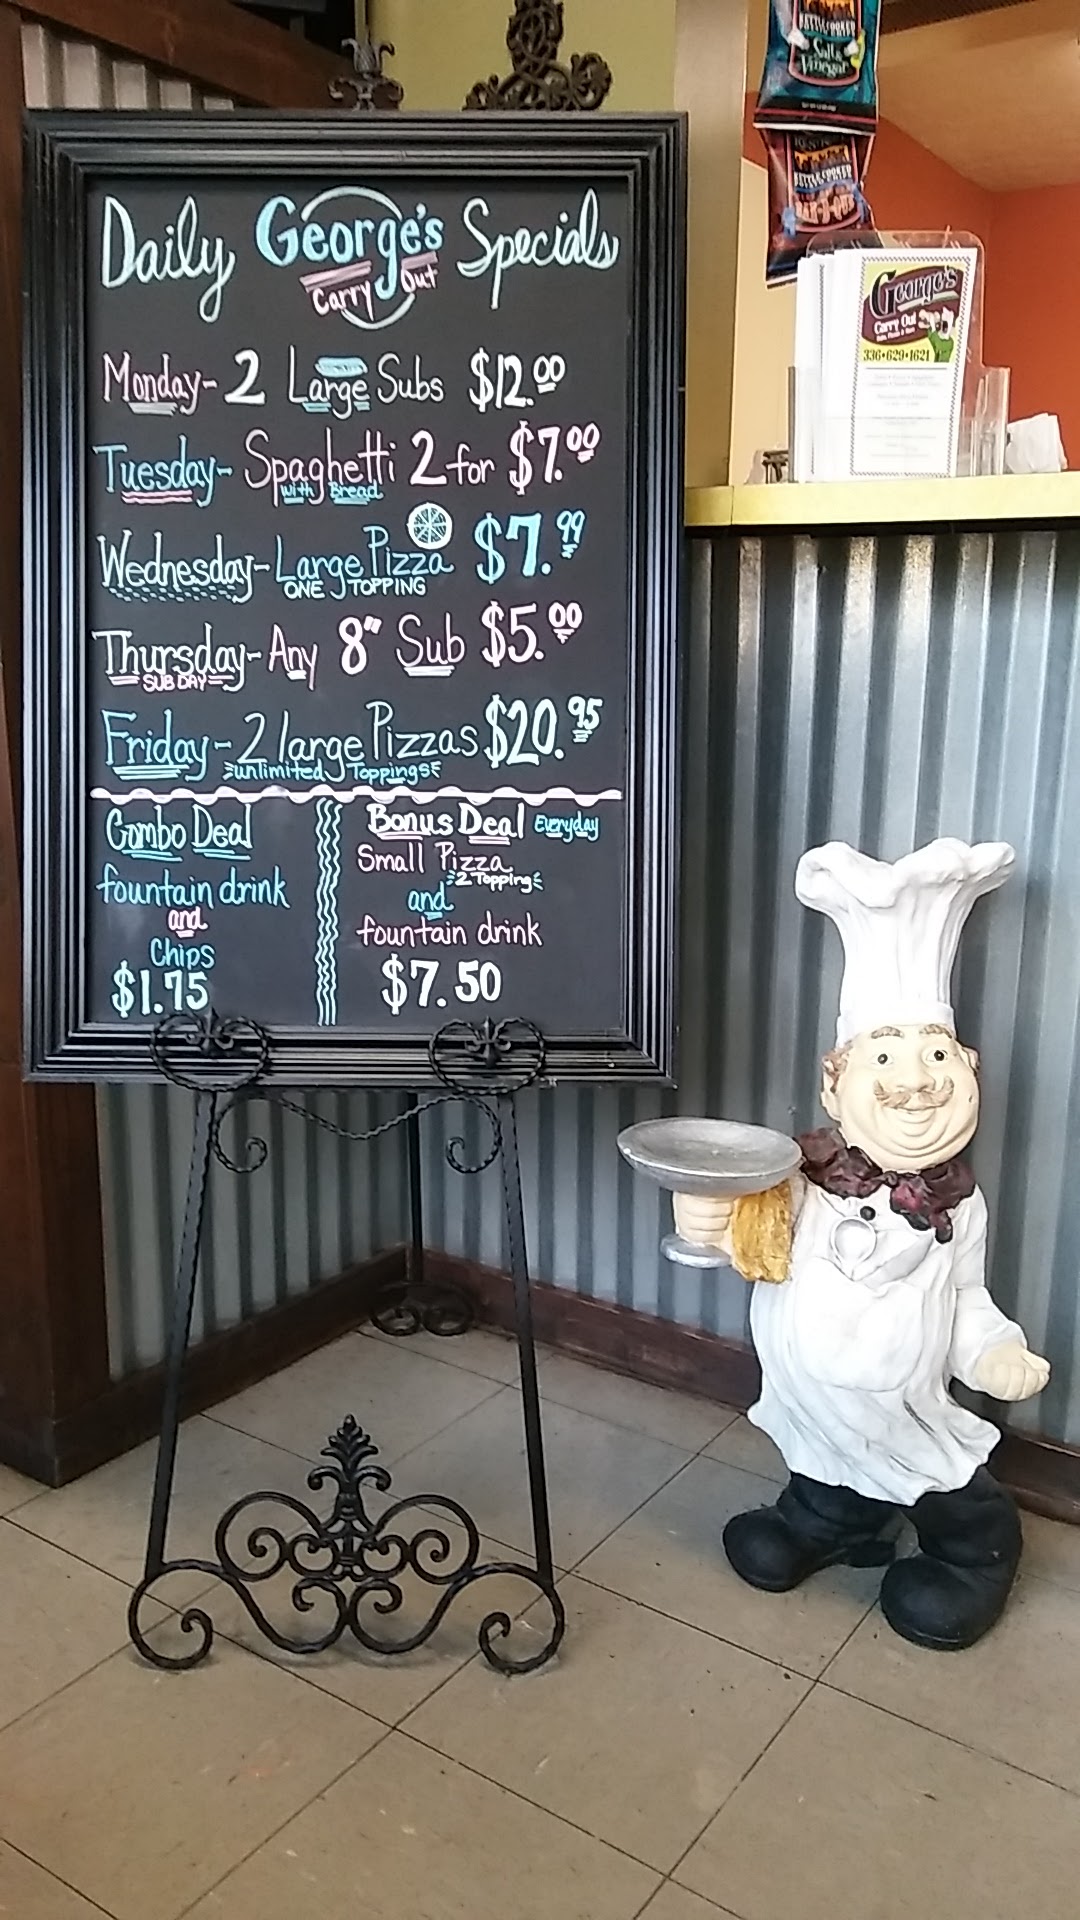 Daily George's Specials
Carry Out
Monday- 2 Large Subs $12.00
Tuesday- Spaghetti 2 for $7.00
with Bread
Wednesday- Large Pizza $7.99
ONE TOPPING
Thursday- Any 8" Sub $5.00
SUB DAY
Friday- 2 large Pizzas $20.95
unlimited Toppings
Combo Deal
fountain drink
and
Chips
$1.75
Bonus Deal Everyday
Small Pizza
2 Topping
and
fountain drink
$7.50
KETTLE COOKED
Salt &
Vinegar
KETTLE COOKED
BAR-B-QUE
George's
Carry Out
336•629•1621